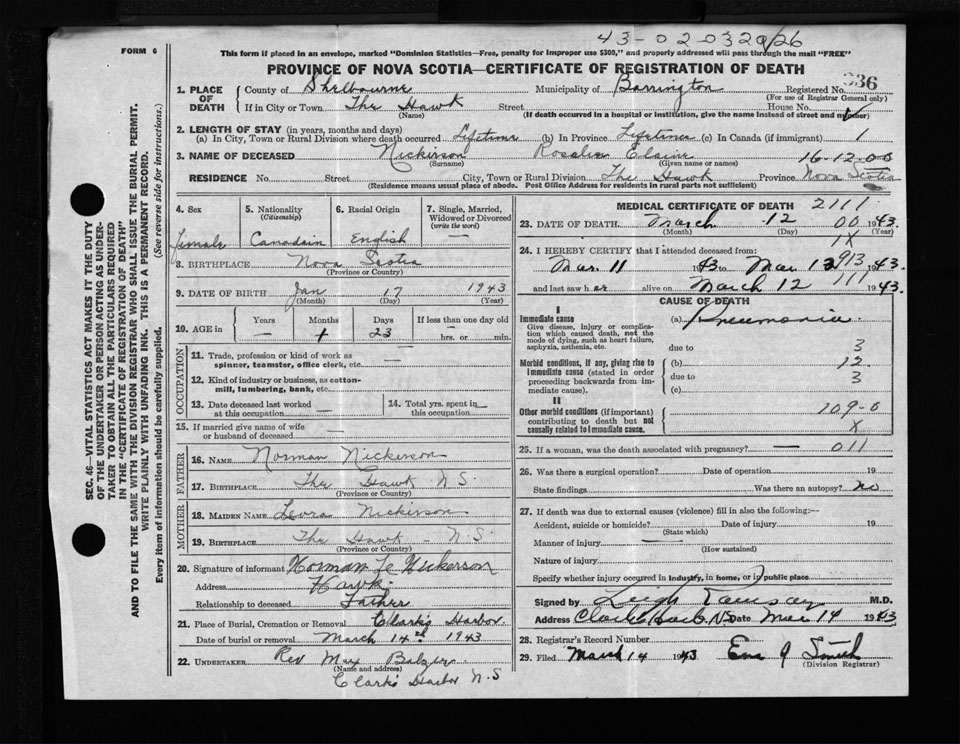 43-020320/26
FORM 6
This form if placed in an envelope, marked "Dominion Statistics—Free, penalty for improper use $300," and properly addressed will pass through the mail "FREE"
PROVINCE OF NOVA SCOTIA—CERTIFICATE OF REGISTRATION OF DEATH
336
1. PLACE OF DEATH
County of Shelbourne Municipality of Barrington Registered No.
(For use of Registrar General only)
If in City or Town The Hawk Street House No.
(Name) (If death occurred in a hospital or institution, give the name instead of street and number)
2. LENGTH OF STAY (in years, months and days)
(a) In City, Town or Rural Division where death occurred Lifetime (b) In Province Lifetime (c) In Canada (if immigrant) 1
3. NAME OF DECEASED Nickerson Rosalie Elaine 16-12-00
(Surname) (Given name or names)
RESIDENCE No. Street City, Town or Rural Division The Hawk Province Nova Scotia
(Residence means usual place of abode. Post Office Address for residents in rural parts not sufficient)
4. Sex
female
5. Nationality (Citizenship)
Canadain
6. Racial Origin
English
7. Single, Married, Widowed or Divorced (write the word)
—
8. BIRTHPLACE Nova Scotia
(Province or Country)
9. DATE OF BIRTH Jan 17 1943
(Month) (Day) (Year)
10. AGE in
Years Months Days If less than one day old
— 1 23 — hrs. or — min.
OCCUPATION
11. Trade, profession or kind of work as spinner, teamster, office clerk, etc. —
12. Kind of industry or business, as cotton-mill, lumbering, bank, etc. —
13. Date deceased last worked at this occupation —
14. Total yrs. spent in this occupation —
15. If married give name of wife or husband of deceased —
FATHER
16. NAME Norman Nickerson
17. BIRTHPLACE The Hawk N S
(Province or Country)
MOTHER
18. MAIDEN NAME Leora Nickerson
19. BIRTHPLACE The Hawk - N.S.
(Province or Country)
20. Signature of informant Norman Nickerson
Address Hawk
Relationship to deceased Father
21. Place of Burial, Cremation or Removal Clark's Harbor
Date of burial or removal March 14th 1943
22. UNDERTAKER Rev Max Balzer
(Name and address)
Clark's Harbor N.S
MEDICAL CERTIFICATE OF DEATH 2111
23. DATE OF DEATH March 12 00 1943
(Month) (Day) (Year)
1X
24. I HEREBY CERTIFY that I attended deceased from:
Mar 11 1943 to Mar 13 913 1943.
and last saw her alive on March 12 111 1943.
CAUSE OF DEATH
I
Immediate cause
Give disease, injury or complication which caused death, not the mode of dying, such as heart failure, asphyxia, asthenia, etc.
(a) Pneumonia
due to 3
Morbid conditions, if any, giving rise to immediate cause (stated in order proceeding backwards from immediate cause).
(b) 12
due to 3
(c)
II
Other morbid conditions (if important) contributing to death but not causally related to immediate cause.
109-0
X
25. If a woman, was the death associated with pregnancy? — 011
26. Was there a surgical operation? Date of operation 19
State findings Was there an autopsy? no
27. If death was due to external causes (violence) fill in also the following:—
Accident, suicide or homicide? Date of injury 19
(State which)
Manner of injury —
(How sustained)
Nature of injury
Specify whether injury occurred in industry, in home, or in public place
Signed by Leigh Ramsay M.D.
Address Clark's Harb. N.S. Date Mar 14 1943
28. Registrar's Record Number
29. Filed March 14 1943 Ena J Smith
(Division Registrar)
SEC. 46—VITAL STATISTICS ACT MAKES IT THE DUTY
OF THE UNDERTAKER OR PERSON ACTING AS UNDER-
TAKER TO OBTAIN ALL THE PARTICULARS REQUIRED
IN THE "CERTIFICATE OF REGISTRATION OF DEATH"
AND TO FILE THE SAME WITH THE DIVISION REGISTRAR WHO SHALL ISSUE THE BURIAL PERMIT.
WRITE PLAINLY WITH UNFADING INK. THIS IS A PERMANENT RECORD.
Every item of information should be carefully supplied. (See reverse side for instructions.)